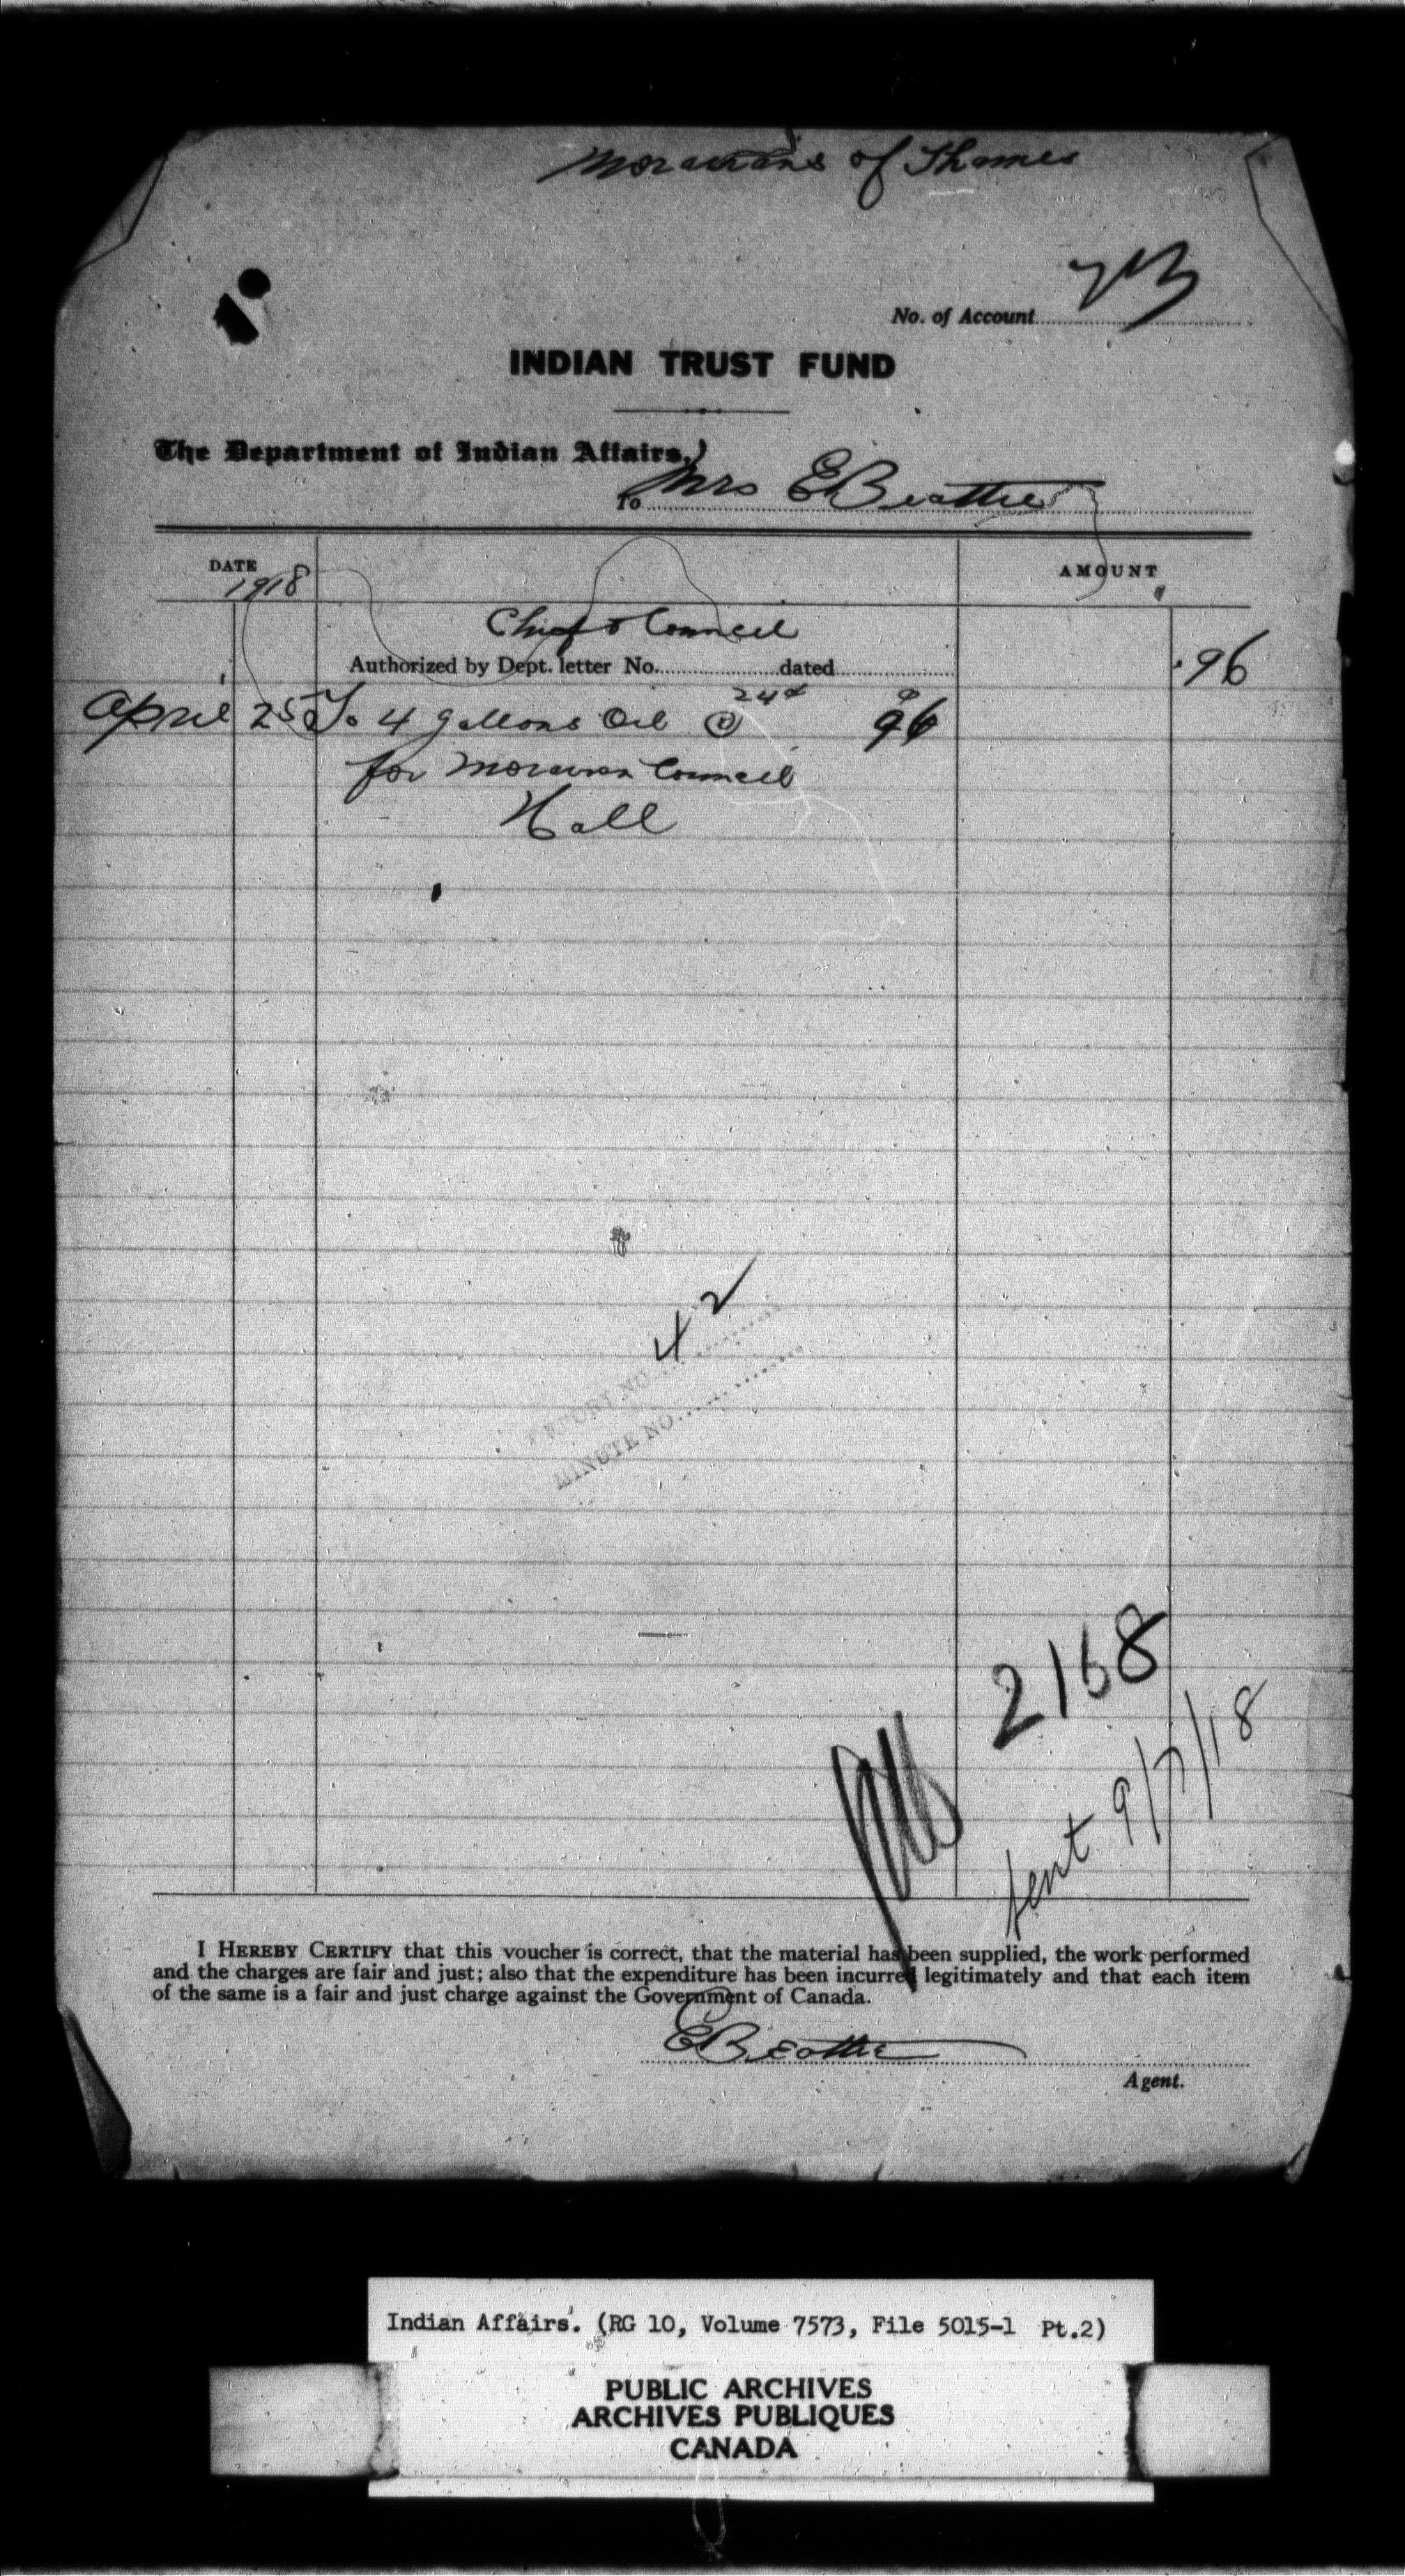 Moravians of Thames
No. of Account 713
INDIAN TRUST FUND
The Department of Indian Affairs,
To Mrs E Beattie
DATE
1918
AMOUNT
Chief & Council
Authorized by Dept. letter No. dated
.96
April 25 To 4 gallons Oil @ 24¢ 96
for Moravian Council
Hall
42
REPORT NO.
MINUTE NO.
2168
sent 9/7/18
I HEREBY CERTIFY that this voucher is correct, that the material has been supplied, the work performed
and the charges are fair and just; also that the expenditure has been incurred legitimately and that each item
of the same is a fair and just charge against the Government of Canada.
E Beattie
Agent.
Indian Affairs. (RG 10, Volume 7573, File 5015-1 Pt.2)
PUBLIC ARCHIVES
ARCHIVES PUBLIQUES
CANADA